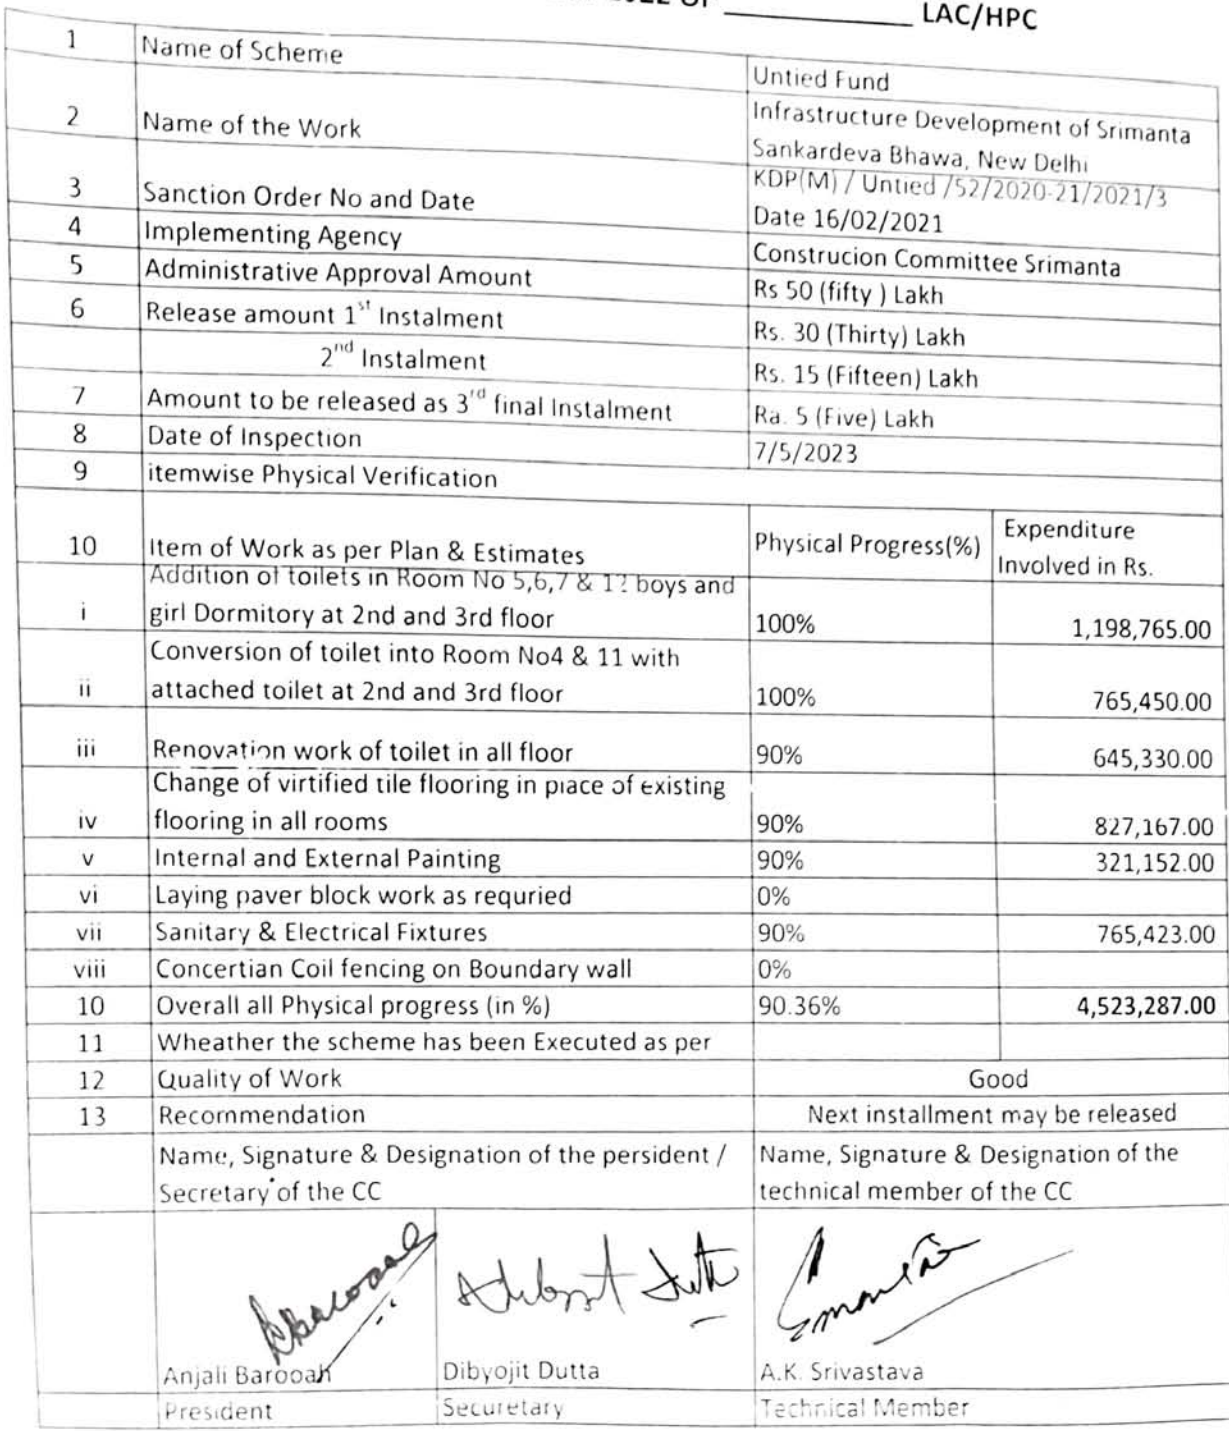 LAC/HPC
1 Name of Scheme Untied Fund
2 Name of the Work Infrastructure Development of Srimanta
Sankardeva Bhawa, New Delhi
3 Sanction Order No and Date KDP(M) / Untied /52/2020-21/2021/3
Date 16/02/2021
4 Implementing Agency Construcion Committee Srimanta
5 Administrative Approval Amount Rs 50 (fifty ) Lakh
6 Release amount 1st Instalment Rs. 30 (Thirty) Lakh
2nd Instalment Rs. 15 (Fifteen) Lakh
7 Amount to be released as 3rd final Instalment Ra. 5 (Five) Lakh
8 Date of Inspection 7/5/2023
9 itemwise Physical Verification
10 Item of Work as per Plan & Estimates Physical Progress(%) Expenditure
Involved in Rs.
Addition of toilets in Room No 5,6,7 & 12 boys and
i girl Dormitory at 2nd and 3rd floor 100% 1,198,765.00
Conversion of toilet into Room No4 & 11 with
ii attached toilet at 2nd and 3rd floor 100% 765,450.00
iii Renovation work of toilet in all floor 90% 645,330.00
Change of virtified tile flooring in place of existing
iv flooring in all rooms 90% 827,167.00
v Internal and External Painting 90% 321,152.00
vi Laying paver block work as requried 0%
vii Sanitary & Electrical Fixtures 90% 765,423.00
viii Concertian Coil fencing on Boundary wall 0%
10 Overall all Physical progress (in %) 90.36% 4,523,287.00
11 Wheather the scheme has been Executed as per
12 Quality of Work Good
13 Recommendation Next installment may be released
Name, Signature & Designation of the persident / Name, Signature & Designation of the
Secretary of the CC technical member of the CC
Anjali Barooah Dibyojit Dutta A.K. Srivastava
President Securetary Technical Member